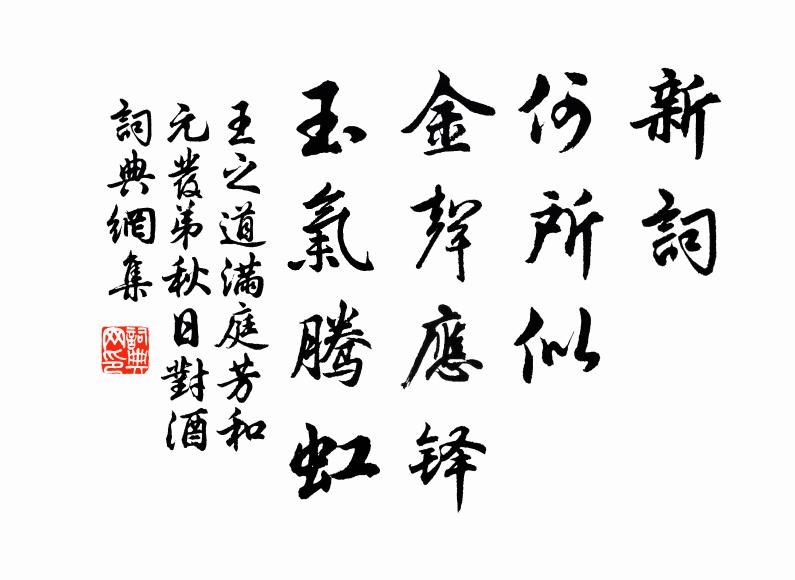 新詞
何所似
金聲應铎
玉氣騰虹
王之道滿庭芳和
元發弟秋日對酒
詞典網集
詞典網印